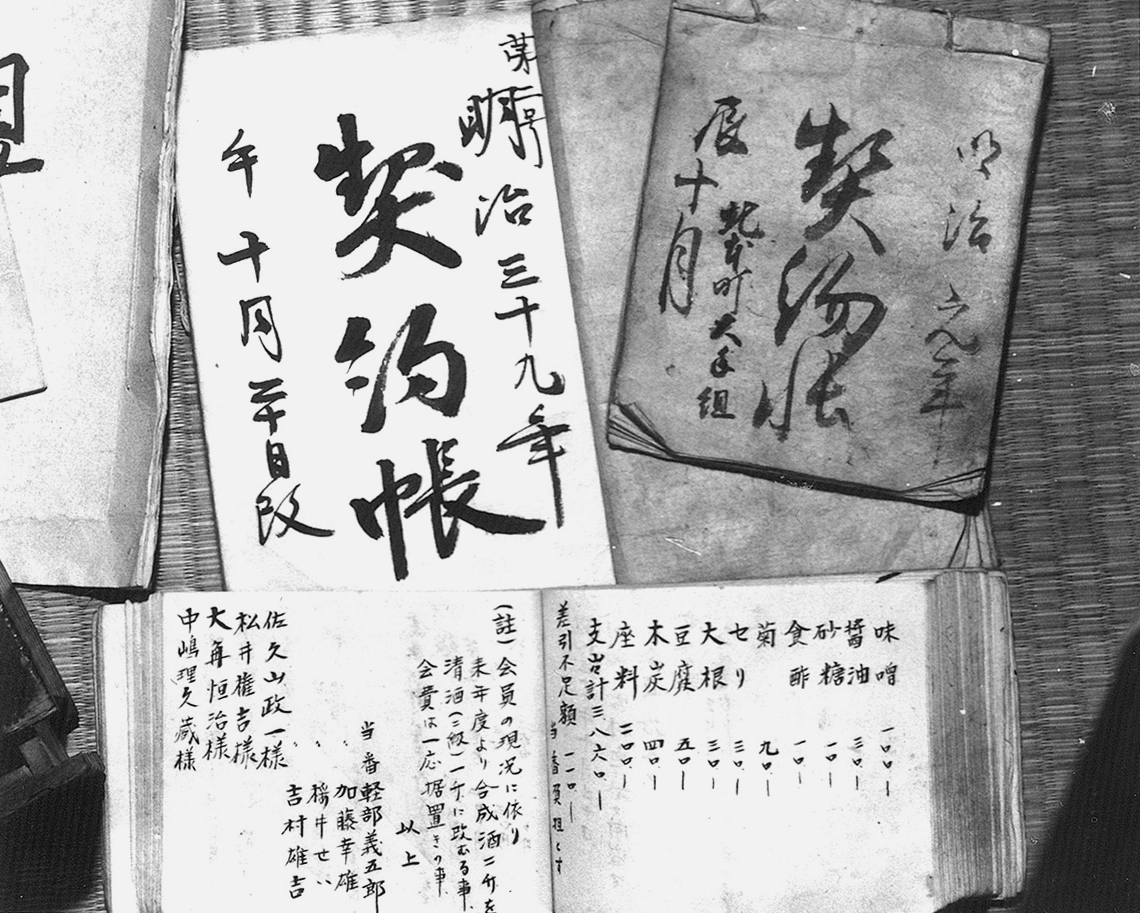 明治元年
契約帳
辰十月
大手組
第二号
明治三十九年
契約帳
午十月二十日改
味噌 一〇〇ー
醤油 三〇ー
砂糖 一〇ー
食酢 一〇ー
菊 九〇ー
セリ 三〇ー
大根 三〇ー
豆腐 五〇ー
木炭 四〇ー
座料 二〇〇ー
支出計 三八六〇ー
差引不足額 一一〇ー 当番負担とす
(註)会員の現況に依り
来年度より合成酒二升を
清酒(二級)一升に改むる事
会費は一応据置きの事
以上
当番 軽部義五郎
〃 加藤幸雄
〃 せい
〃 吉村雄吉
佐久山政一様
松井権吉様
大再恒治様
中嶋理久蔵様